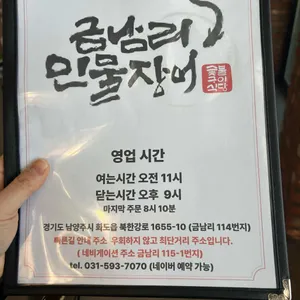 금남리
민물장어
영업 시간
여는시간 오전 11시
닫는시간 오후 9시
마지막 주문 8시 10분
경기도 남양주시 화도읍 북한강로 1655-10 (금남리 114번지)
빠른길 안내 주소 우회하지 않고 최단거리 주소입니다.
( 네비게이션 주소 금남리 115-1번지)
tel. 031-593-7070 (네이버 예약 가능)